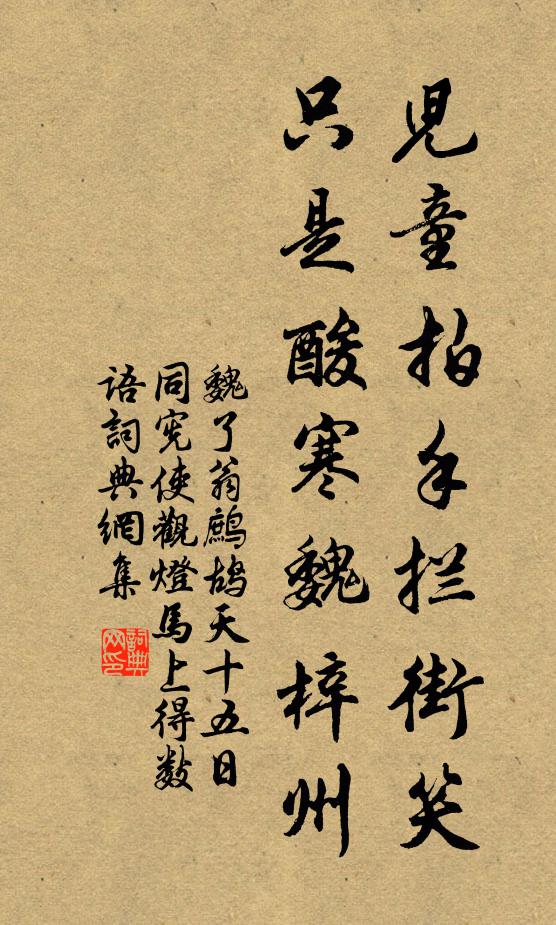 児童拍手拦街笑
只是酸寒魏梓州
魏了翁鷓鴣天十五日
同宪使觀燈馬上得数
语詞典網集
詞典网印